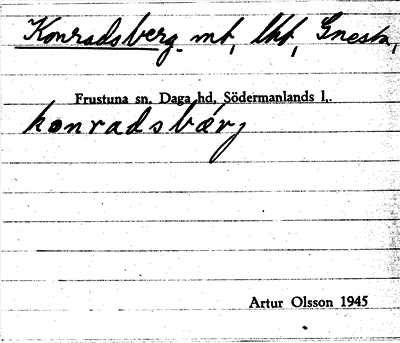 Konradsberg mt, lht, Gnesta,
Frustuna sn, Daga hd, Södermanlands l,.
konradsbærj
Artur Olsson 1945